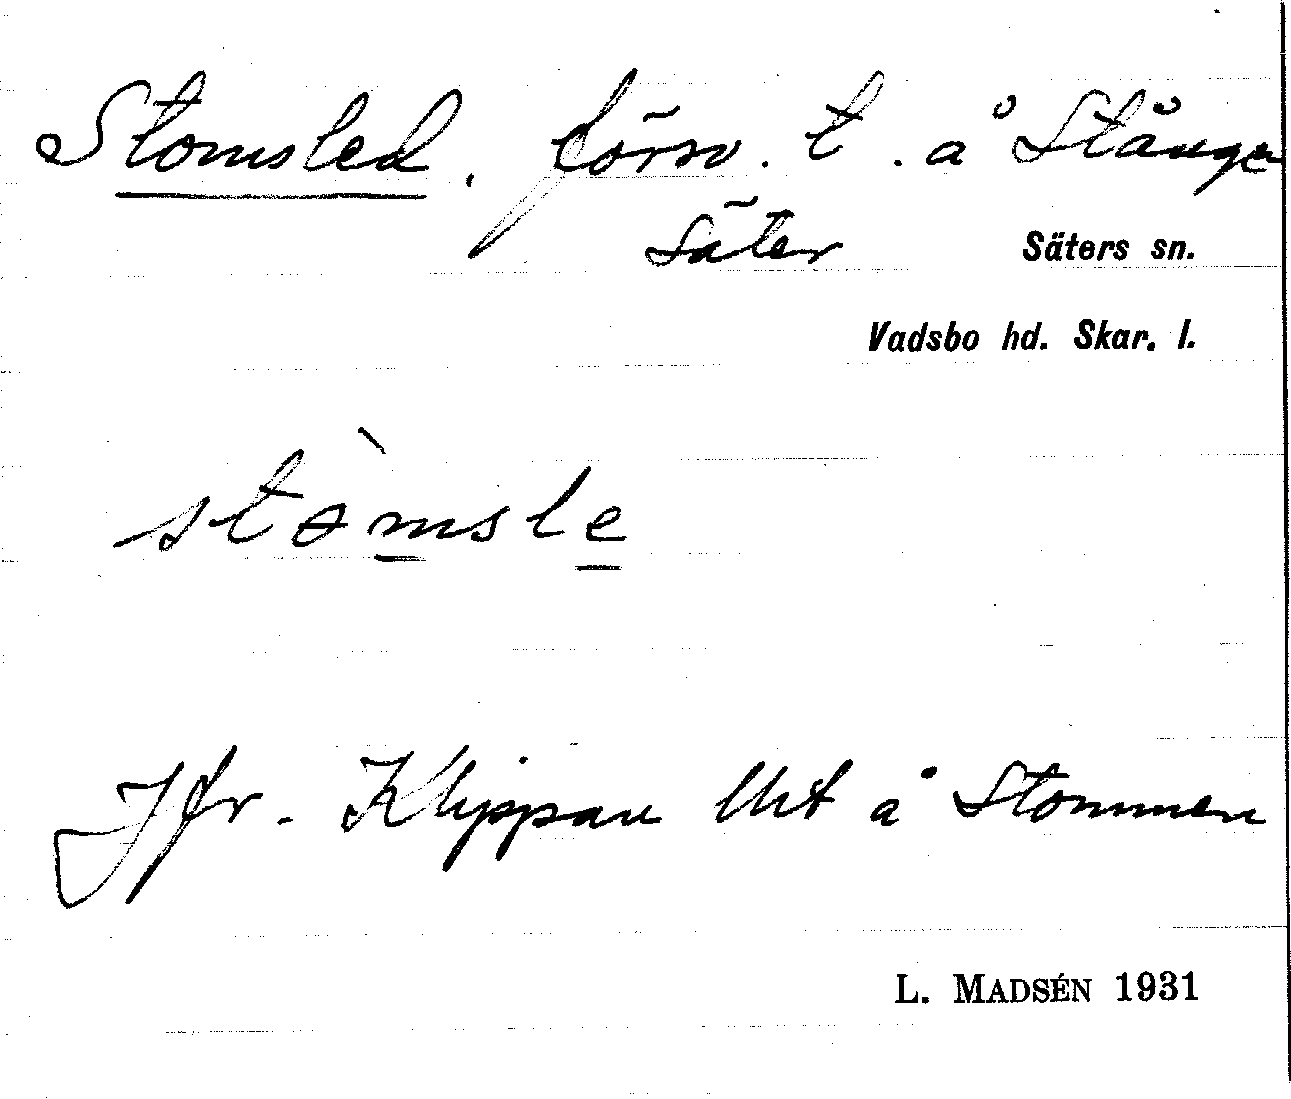 Stomsled, försv. t. å Stånga
Säter Säters sn.
Vadsbo hd. Skar. l.
stòmsle
Jfr. Klippan lht å Stommen
L. MADSÉN 1931